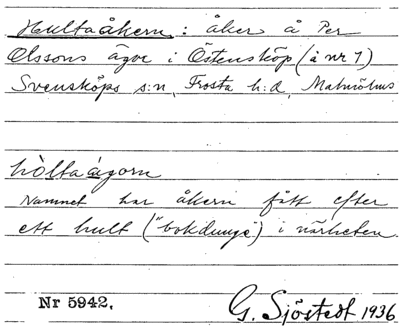 Hultaåkern: åker å Per
Olssons ägor i Östensköp (å nr 1)
Svensköps s:n, Frosta h:d, Malmöhus
hòltaågorn
Namnet har åkern fått efter
ett hult ("bokdunge") i närheten.
Nr 5942.
G. Sjöstedt 1936